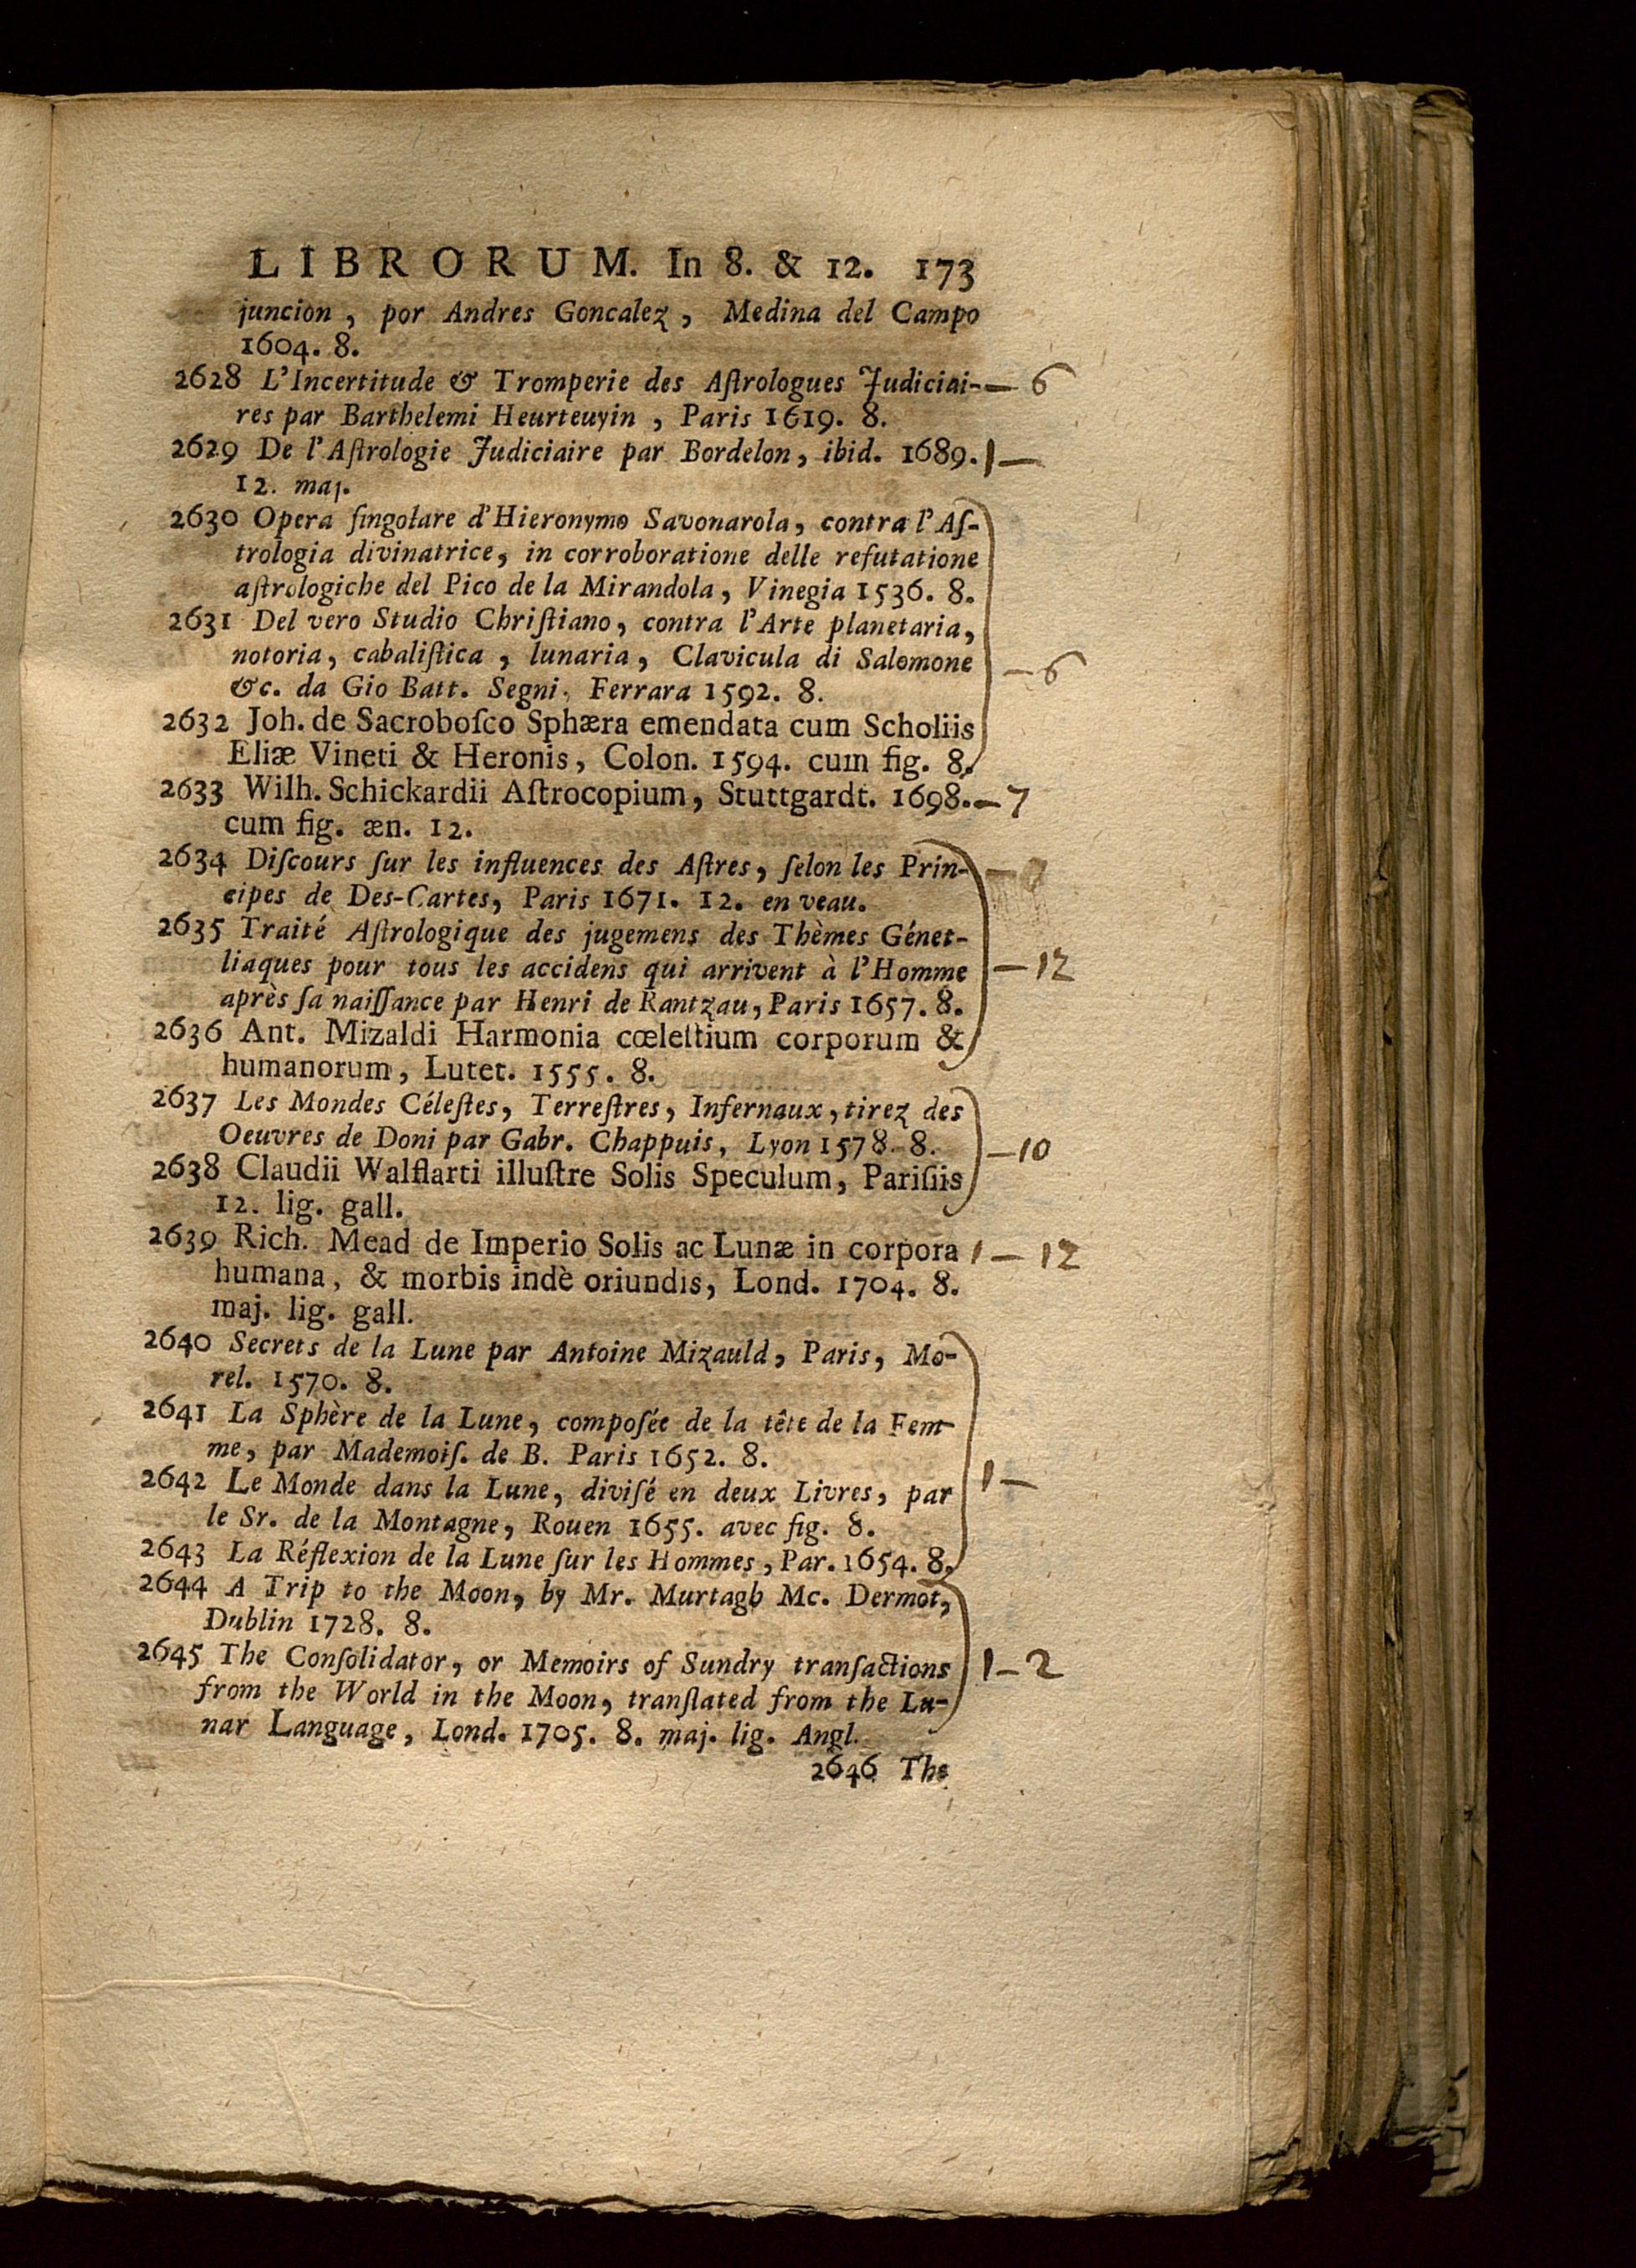 LIBRORUM. In 8. & 12. 173
juncion, por Andres Goncalez, Medina del Campo
1604. 8.
2628 L'Incertitude & Tromperie des Aſtrologues Judiciai- — 6
res par Barthelemi Heurteuyin, Paris 1619. 8.
2629 De l'Aſtrologie Judiciaire par Bordelon, ibid. 1689. 1 —
12. maj.
2630 Opera ſingolare d'Hieronymo Savonarola, contra l'Aſ-
trologia divinatrice, in corroboratione delle refutatione
aſtrologiche del Pico de la Mirandola, Vinegia 1536. 8.
2631 Del vero Studio Chriſtiano, contra l'Arte planetaria,
notoria, cabaliſtica, lunaria, Clavicula di Salomone — 6
&c. da Gio Batt. Segni. Ferrara 1592. 8.
2632 Joh. de Sacroboſco Sphæra emendata cum Scholiis
Eliæ Vineti & Heronis, Colon. 1594. cum fig. 8.
2633 Wilh. Schickardii Aſtrocopium, Stuttgardt. 1698. — 7
cum fig. æn. 12.
2634 Diſcours ſur les influences des Aſtres, ſelon les Prin-
cipes de Des-Cartes, Paris 1671. 12. en veau.
2635 Traité Aſtrologique des jugemens des Thèmes Génet-
liaques pour tous les accidens qui arrivent à l'Homme — 12
après ſa naiſſance par Henri de Rantzau, Paris 1657. 8.
2636 Ant. Mizaldi Harmonia cœleſtium corporum &
humanorum, Lutet. 1555. 8.
2637 Les Mondes Céleſtes, Terreſtres, Infernaux, tirez des
Oeuvres de Doni par Gabr. Chappuis, Lyon 1578. 8. — 10
2638 Claudii Walflarti illuſtre Solis Speculum, Pariſiis
12. lig. gall.
2639 Rich. Mead de Imperio Solis ac Lunæ in corpora 1 — 12
humana, & morbis indè oriundis, Lond. 1704. 8.
maj. lig. gall.
2640 Secrets de la Lune par Antoine Mizauld, Paris, Mo-
rel. 1570. 8.
2641 La Sphère de la Lune, compoſée de la tête de la Fem-
me, par Mademoiſ. de B. Paris 1652. 8.
2642 Le Monde dans la Lune, diviſé en deux Livres, par 1 —
le Sr. de la Montagne, Rouen 1655. avec fig. 8.
2643 La Réflexion de la Lune ſur les Hommes, Par. 1654. 8.
2644 A Trip to the Moon, by Mr. Murtagh Mc. Dermot,
Dublin 1728. 8.
2645 The Conſolidator, or Memoirs of Sundry tranſactions 1 — 2
from the World in the Moon, tranſlated from the Lu-
nar Language, Lond. 1705. 8. maj. lig. Angl.
2646 The